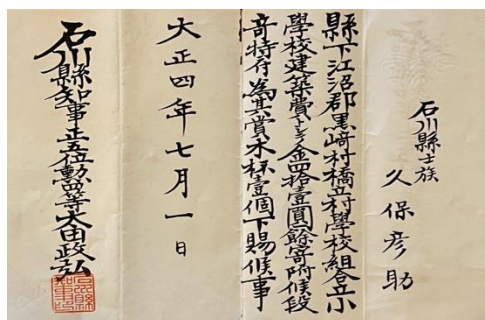 石川縣士族
久保彦助
縣下江沼郡黒﨑村橋立村學校組合立小
學校建築費トシテ金四拾壹圓餘寄附候段
奇特ニ付為其賞木杯壹個下賜候事
大正四年七月一日
石川縣知事正五位勳四等太田政弘